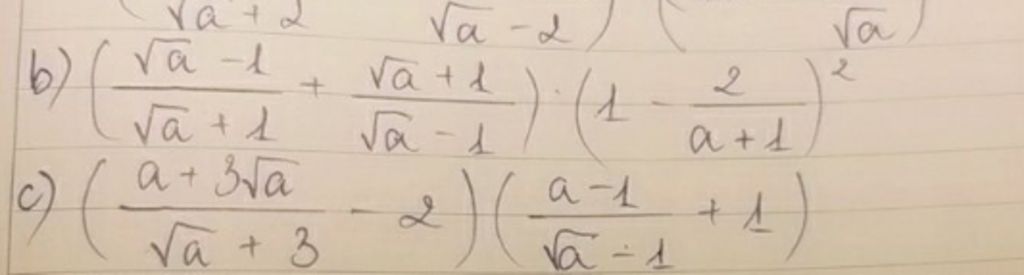 √a + 2 √a - 2 ) ( √a )
b) ( (√a - 1)/(√a + 1) + (√a + 1)/(√a - 1) ) · ( 1 - 2/(a + 1) )²
c) ( (a + 3√a)/(√a + 3) - 2 ) ( (a - 1)/(√a - 1) + 1 )